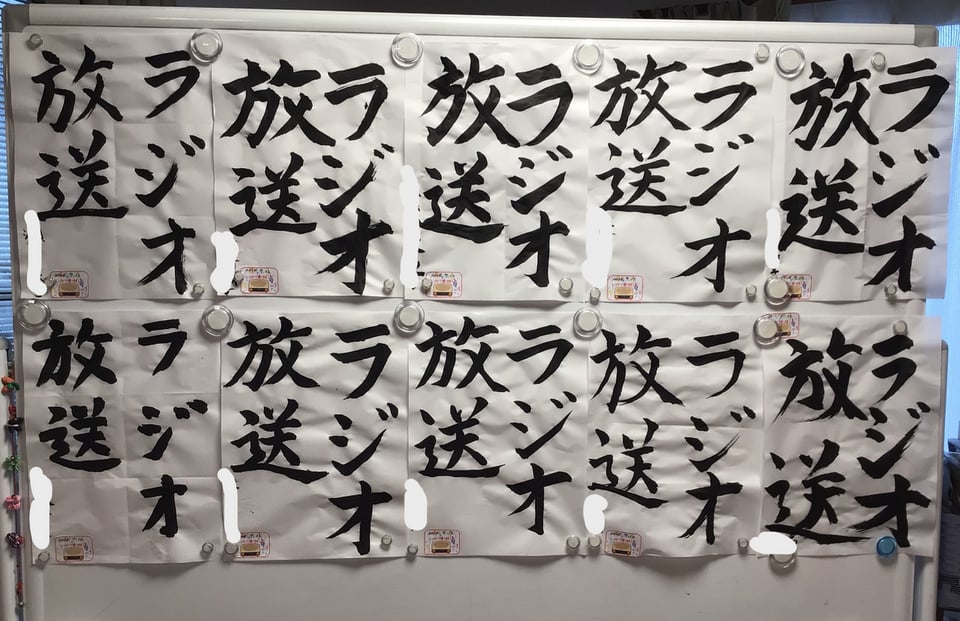 ラジオ
放送
ラジオ
放送
ラジオ
放送
ラジオ
放送
ラジオ
放送
ラジオ
放送
ラジオ
放送
ラジオ
放送
ラジオ
放送
ラジオ
放送